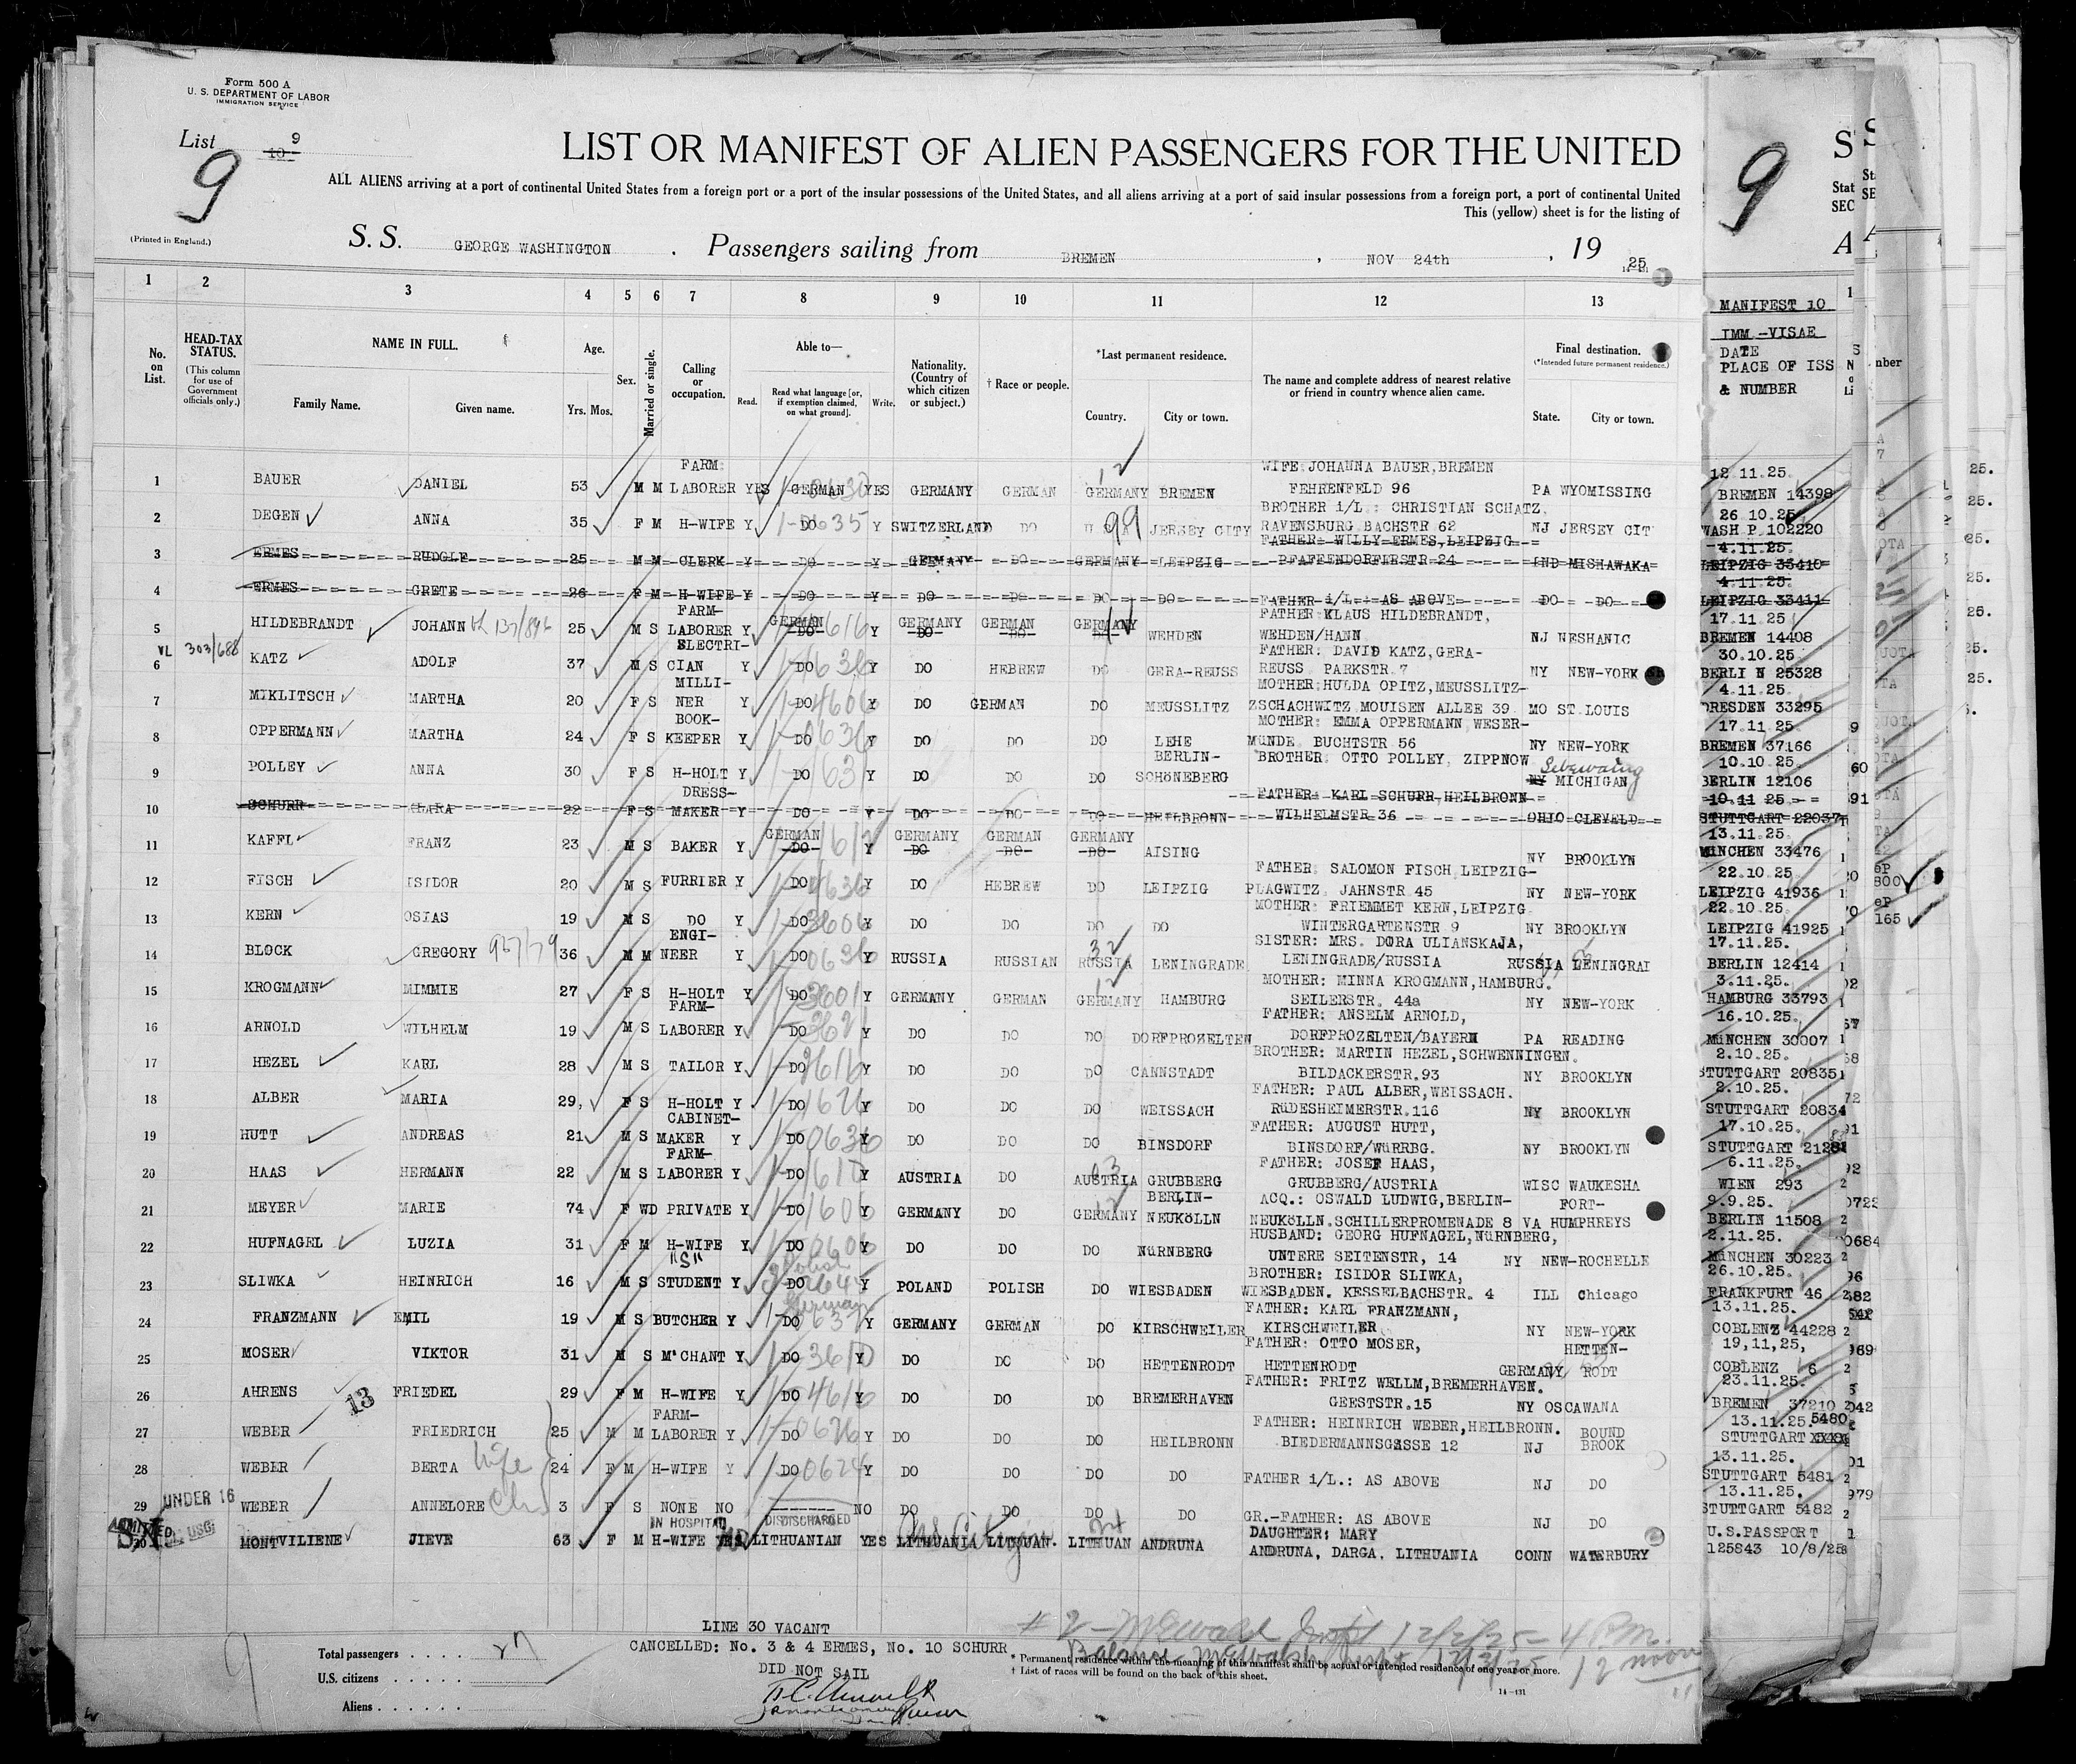 Form 500 A
U. S. DEPARTMENT OF LABOR
IMMIGRATION SERVICE
List 10 9
9
LIST OR MANIFEST OF ALIEN PASSENGERS FOR THE UNITED
ALL ALIENS arriving at a port of continental United States from a foreign port or a port of the insular possessions of the United States, and all aliens arriving at a port of said insular possessions from a foreign port, a port of continental United
This (yellow) sheet is for the listing of
(Printed in England.)
S. S. GEORGE WASHINGTON . Passengers sailing from BREMEN , NOV 24th , 19 25
1 2 3 4 5 6 7 8 9 10 11 12 13
No. on List.
HEAD-TAX STATUS.
(This column for use of Government officials only.)
NAME IN FULL.
Family Name. Given name.
Age.
Yrs. Mos.
Sex.
Married or single.
Calling or occupation.
Able to—
Read. Read what language [or, if exemption claimed, on what ground]. Write.
Nationality. (Country of which citizen or subject.)
† Race or people.
*Last permanent residence.
Country. City or town.
The name and complete address of nearest relative or friend in country whence alien came.
Final destination.
(*Intended future permanent residence.)
State. City or town.
9
MANIFEST 10
IMM -VISAE
DATE
PLACE OF ISS
& NUMBER
FARM WIFE JOHANNA BAUER, BREMEN 12.11.25.
1 BAUER DANIEL 53 M M LABORER YES GERMAN YES GERMANY GERMAN GERMANY BREMEN FEHRENFELD 96 PA WYOMISSING BREMEN 14398
BROTHER i/L : CHRISTIAN SCHATZ, 26 10.25.
2 DEGEN ANNA 35 F M H-WIFE Y DO Y SWITZERLAND DO U S A JERSEY CITY RAVENSBURG BACHSTR 62 NJ JERSEY CIT WASH P 102220
FATHER WILLY ERMES, LEIPZIG 4.11.25.
3 ERMES RUDOLF 25 M M CLERK Y DO Y GERMANY DO GERMANY LEIPZIG PFAFFENDORFERSTR 24 IND MISHAWAKA LEIPZIG 33410
4.11.25.
4 ERMES GRETE 26 F M H-WIFE Y DO Y DO DO DO DO FATHER i/L: AS ABOVE DO DO LEIPZIG 33411
FARM- FATHER KLAUS HILDEBRANDT, 17.11.25
5 HILDEBRANDT JOHANN 25 M S LABORER Y GERMAN DO Y GERMANY DO GERMAN DO GERMANY WEHDEN WEHDEN/HANN NJ NESHANIC BREMEN 14408
VL 303/688
ELECTRI- FATHER: DAVID KATZ, GERA- 30.10.25
6 KATZ ADOLF 37 M S CIAN Y DO Y DO HEBREW DO GERA-REUSS REUSS PARKSTR 7 NY NEW-YORK BERLI N 25328
MILLI- MOTHER HULDA OPITZ, MEUSSLITZ- 4.11.25.
7 MIKLITSCH MARTHA 20 F S NER Y DO Y DO GERMAN DO MEUSSLITZ ZSCHACHWITZ MOUISEN ALLEE 39 MO ST.LOUIS DRESDEN 33295
BOOK- MOTHER: EMMA OPPERMANN WESER- 17.11.25
8 OPPERMANN MARTHA 24 F S KEEPER Y DO Y DO DO DO LEHE MÜNDE BUCHTSTR 56 NY NEW-YORK BREMEN 37166
BERLIN- BROTHER: OTTO POLLEY, ZIPPNOW Sebewaing 10.10.25.
9 POLLEY ANNA 30 F S H-HOLT Y DO Y DO DO DO SCHÖNEBERG NY MICHIGAN BERLIN 12106
DRESS- FATHER KARL SCHURR, HEILBRONN 10.11 25
10 SCHURR CLARA 22 F S MAKER Y DO Y DO DO DO HEILBRONN WILHELMSTR 36 OHIO CLEVELD STUTTGART 22037
13.11.25.
11 KAFFL FRANZ 23 M S BAKER Y GERMAN DO Y GERMANY DO GERMAN DO GERMANY DO AISING NY BROOKLYN MÜNCHEN 33476
FATHER SALOMON FISCH, LEIPZIG- 22.10.25
12 FISCH ISIDOR 20 M S FURRIER Y DO Y DO HEBREW DO LEIPZIG PLAGWITZ JAHNSTR 45 NY NEW-YORK LEIPZIG 41936
MOTHER: FRIEMMET KERN, LEIPZIG 22.10.25.
13 KERN OSIAS 19 M S DO Y DO Y DO DO DO DO WINTERGARTENSTR 9 NY BROOKLYN LEIPZIG 41925
ENGI- SISTER: MRS. DORA ULIANSKAJA, 17.11.25.
14 BLOCK GREGORY 36 M M NEER Y DO Y RUSSIA RUSSIAN RUSSIA LENINGRADE LENINGRADE/RUSSIA RUSSIA LENINGRAI BERLIN 12414
MOTHER: MINNA KROGMANN, HAMBURG. 3.11.25.
15 KROGMANN MIMMIE 27 F S H-HOLT Y DO Y GERMANY GERMAN GERMANY HAMBURG SEILERSTR. 44a NY NEW-YORK HAMBURG 33793
FARM- FATHER: ANSELM ARNOLD, 16.10.25.
16 ARNOLD WILHELM 19 M S LABORER Y DO Y DO DO DO DORFPROZELTEN DORFPROZELTEN/BAYERN PA READING MÜNCHEN 30007
BROTHER: MARTIN HEZEL, SCHWENNINGEN. 2.10.25.
17 HEZEL KARL 28 M S TAILOR Y DO Y DO DO DO CANNSTADT BILDACKERSTR.93 NY BROOKLYN STUTTGART 20835
FATHER: PAUL ALBER, WEISSACH. 2.10.25.
18 ALBER MARIA 29, F S H-HOLT Y DO Y DO DO DO WEISSACH RÜDESHEIMERSTR.116 NY BROOKLYN STUTTGART 20834
CABINET- FATHER: AUGUST HUTT, 17.10.25.
19 HUTT ANDREAS 21 M S MAKER Y DO Y DO DO DO BINSDORF BINSDORF/WÜRRBG. NY BROOKLYN STUTTGART 21281
FARM- FATHER: JOSEF HAAS, 6.11.25.
20 HAAS HERMANN 22 M S LABORER Y DO Y AUSTRIA DO AUSTRIA GRUBBERG GRUBBERG/AUSTRIA WISC WAUKESHA WIEN 293
BERLIN- ACQ.: OSWALD LUDWIG, BERLIN- FORT- 9.9.25.
21 MEYER MARIE 74 F WD PRIVATE Y DO Y GERMANY DO GERMANY NEUKÖLLN NEUKÖLLN. SCHILLERPROMENADE 8 VA HUMPHREYS BERLIN 11508
HUSBAND: GEORG HUFNAGEL, NÜRNBERG, 2.11.25.
22 HUFNAGEL LUZIA 31 F M H-WIFE Y DO Y DO DO DO NÜRNBERG UNTERE SEITENSTR, 14 NY NEW-ROCHELLE MÜNCHEN 30223
"S" Polish BROTHER: ISIDOR SLIWKA, 26.10.25.
23 SLIWKA HEINRICH 16 M S STUDENT Y DO Y POLAND POLISH DO WIESBADEN WIESBADEN. KESSELBACHSTR. 4 ILL Chicago FRANKFURT 46
German FATHER: KARL FRANZMANN, 13.11.25.
24 FRANZMANN EMIL 19 M S BUTCHER Y DO Y GERMANY GERMAN DO KIRSCHWEILER KIRSCHWEILER NY NEW-YORK COBLENZ 44228
FATHER: OTTO MOSER, HETTEN- 19,11,25,
25 MOSER VIKTOR 31 M S M'CHANT Y DO Y DO DO DO HETTENRODT HETTENRODT GERMANY RODT COBLENZ 6
FATHER: FRITZ WELLM, BREMERHAVEN. 23.11.25.
26 AHRENS 13 FRIEDEL 29 F M H-WIFE Y DO Y DO DO DO BREMERHAVEN GEESTSTR.15 NY OSCAWANA BREMEN 37210
FARM- FATHER: HEINRICH WEBER, HEILBRONN. BOUND 13.11.25. 5480
27 WEBER FRIEDRICH 25 M M LABORER Y DO Y DO DO DO HEILBRONN BIEDERMANNSGASSE 12 NJ BROOK STUTTGART
13.11.25.
28 WEBER BERTA wife 24 F M H-WIFE Y DO Y DO DO DO DO FATHER i/L.: AS ABOVE NJ DO STUTTGART 5481
UNDER 16 13.11.25.
29 WEBER ANNELORE Ch 3 F S NONE NO NO DO DO DO DO GR.-FATHER: AS ABOVE NJ DO STUTTGART 5482
ADMITTED IN HOSPITAL DISCHARGED DAUGHTER: MARY U.S.PASSPORT
30 MONTVILIENE JIEVE 63 F M H-WIFE YES LITHUANIAN YES LITHUANIA LITHUAN. LITHUAN ANDRUNA ANDRUNA, DARGA, LITHUANIA CONN WATERBURY 125843 10/8/25
US Citizen
LINE 30 VACANT
CANCELLED: No. 3 & 4 ERMES, No. 10 SCHURR
DID NOT SAIL
Total passengers . . . . . 27
U.S. citizens . . . . . .
Aliens . . . . . . .
* Permanent residence within the meaning of this manifest shall be actual or intended residence of one year or more.
† List of races will be found on the back of this sheet.
14—131